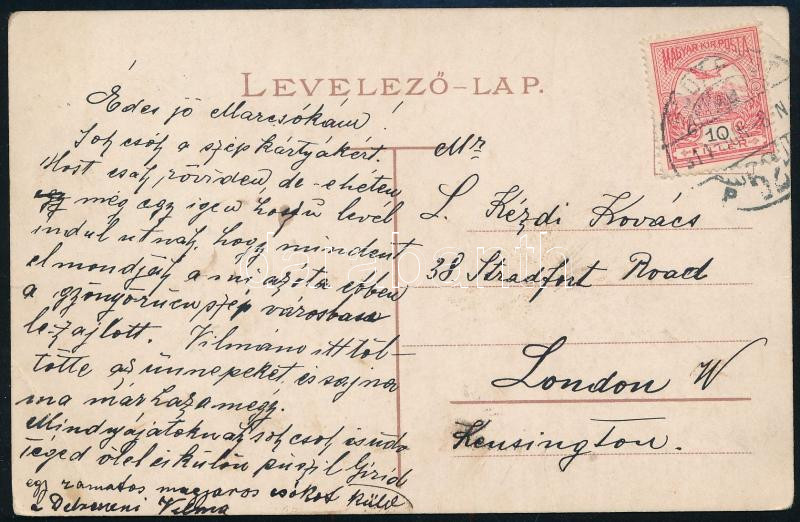 LEVELEZŐ-LAP.
MAGYAR KIR. POSTA
10
FILLÉR
Édes jó Marcsókám!
Sok csók a szép kártyákért.
Most csak röviden, de e héten
még egy igen hosszu levél
indul utnak, hogy mindent
elmondják a mi azóta ebben
a gyönyörüen szép városban
lezajlott. Vilmáno itt töl-
tötte az ünnepeket, és sajna
ma már haza megy.
Mindnyájatoknak sok csok is
téged ölel és külön puszil
egy zamatos magyaros csókot küld
a Debreceni Vilma
Mr
L. Kézdi Kovács
38 Stradfort Road
London W
Kensington.
darabanth